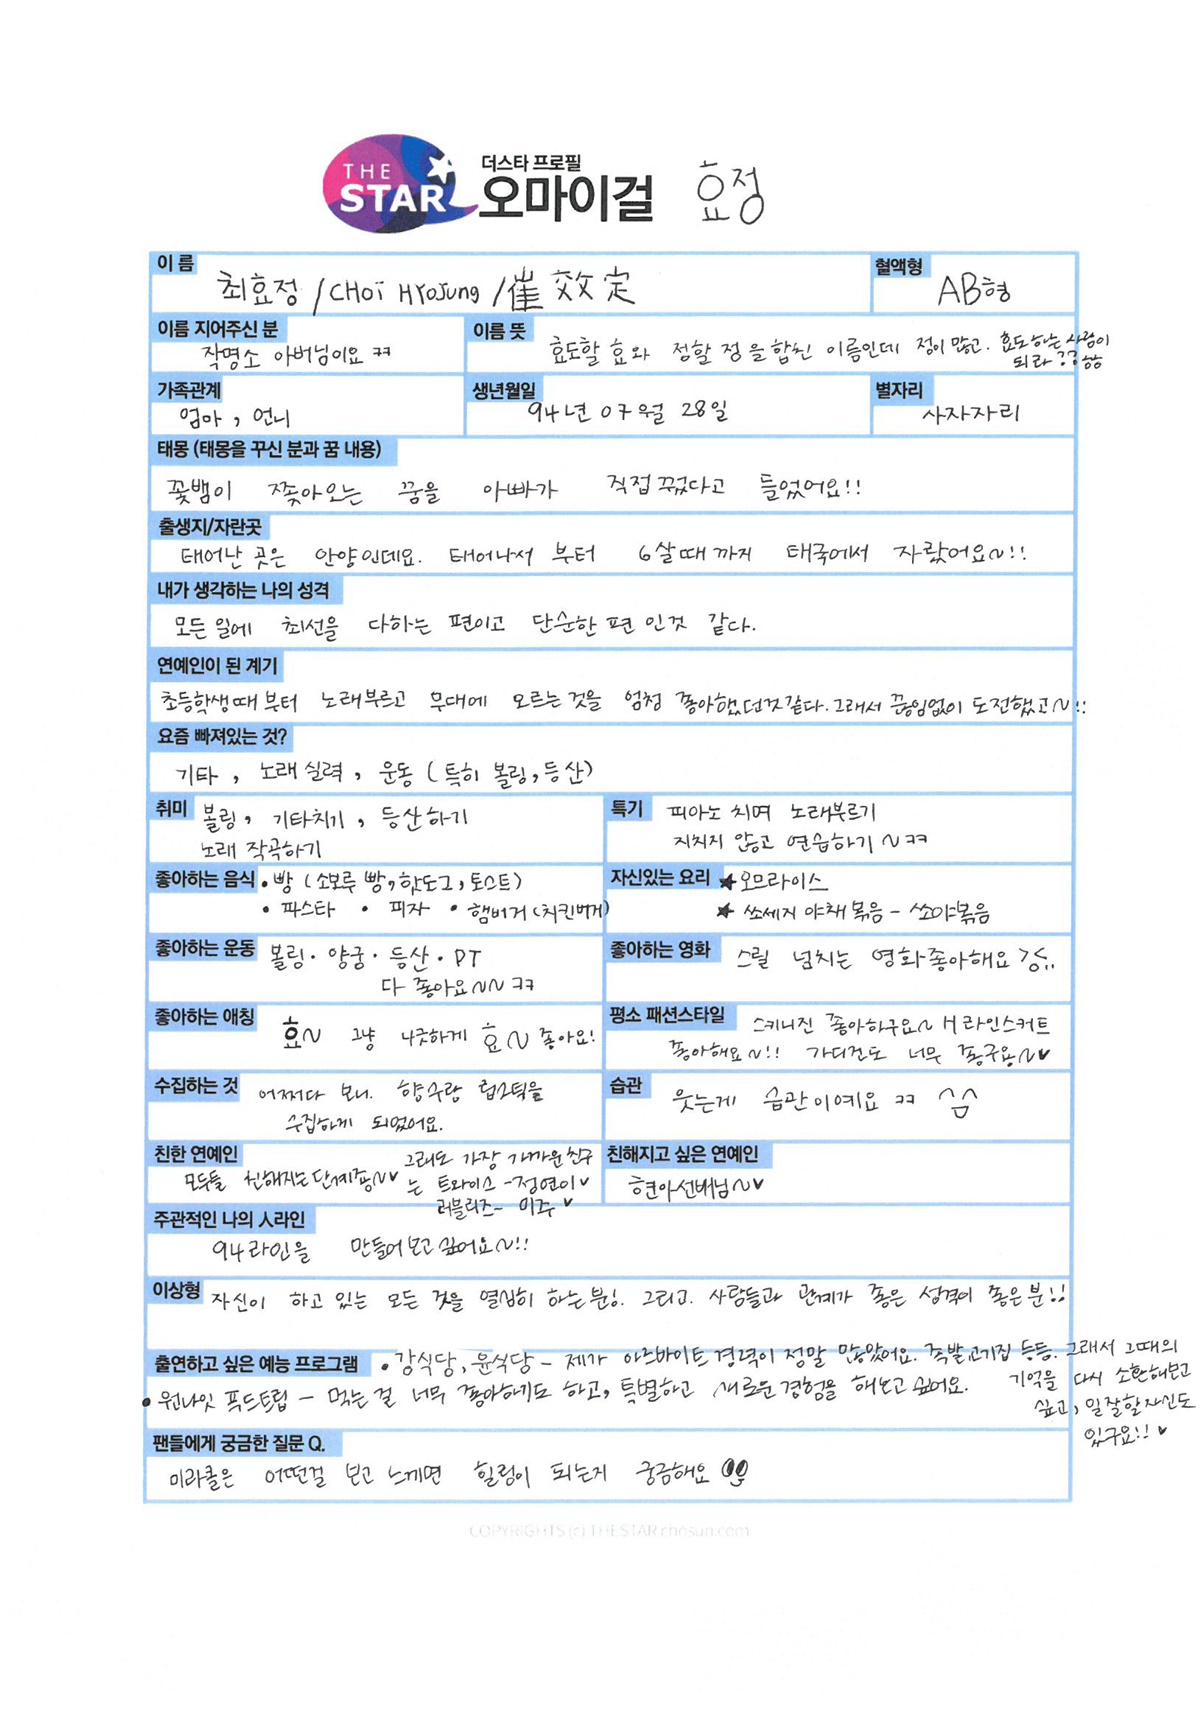 THE STAR
더스타 프로필
오마이걸 효정
이 름
최효정 / CHOI HYOJUNG / 崔 效 定
혈액형
AB형
이름 지어주신 분
작명소 아버님이요 ㅋㅋ
이름 뜻
효도할 효와 정할 정을 합친 이름인데 정이 많고. 효도 하는 사람이
되라??ㅎㅎ
가족관계
엄마, 언니
생년월일
94년 07월 28일
별자리
사자자리
태몽 (태몽을 꾸신 분과 꿈 내용)
꽃뱀이 쫓아오는 꿈을 아빠가 직접 꿨다고 들었어요!!
출생지/자란곳
태어난 곳은 안양인데요. 태어나서 부터 6살때까지 태국에서 자랐어요~!!
내가 생각하는 나의 성격
모든 일에 최선을 다하는 편이고 단순한 편 인것 같다.
연예인이 된 계기
초등학생때 부터 노래부르고 무대에 오르는것을 엄청 좋아했던것같다. 그래서 끊임없이 도전했고~!!
요즘 빠져있는 것?
기타, 노래실력, 운동 (특히 볼링, 등산)
취미
볼링, 기타치기, 등산하기
노래 작곡하기
특기
피아노 치며 노래부르기
지치지 않고 연습하기~ㅋㅋ
좋아하는 음식
•빵 (소보루 빵, 핫도그, 토스트)
• 파스타 • 피자 • 햄버거 (치킨버거)
자신있는 요리
★오므라이스
★ 쏘세지 야채볶음 - 쏘야볶음
좋아하는 운동
볼링 · 양궁 · 등산 · PT
다 좋아요~~ ㅋㅋ
좋아하는 영화
스릴 넘치는 영화좋아해요
좋아하는 애칭
효~ 그냥 나긋하게 효~ 좋아요!
평소 패션스타일
스키니진 좋아하구요~ H라인스커트
좋아해요~!! 가디건도 너무 좋구요~♥
수집하는 것
어쩌다 보니. 향수랑 립스틱을
수집하게 되었어요.
습관
웃는게 습관이예요 ㅋㅋ ^^
친한 연예인
모두들 친해지는단계죵~♥ 그래도 가장 가까운친구
는 트와이스 - 정연이♥
러블리즈 - 미주♥
친해지고 싶은 연예인
현아선배님~♥
주관적인 나의 人라인
94라인을 만들어보고싶어요~!!
이상형
자신이 하고 있는 모든 것을 열심히 하는분!. 그리고. 사람들과 관계가 좋은 성격이 좋은분!!
출연하고 싶은 예능 프로그램
•강식당, 윤식당 - 제가 아르바이트 경력이 정말 많았어요. 족발, 고기집 등등. 그래서 그때의
기억을 다시 소환해보고
싶고, 일잘할자신도
있구요!! ♥
•원나잇 푸드트립 - 먹는걸 너무 좋아하기도 하고, 특별하고 새로운경험을 해보고싶어요.
팬들에게 궁금한 질문 Q.
미라클은 어떤걸 보고 느끼면 힐링이 되는지 궁금해요
COPYRIGHTS (c) THESTAR.chosun.com